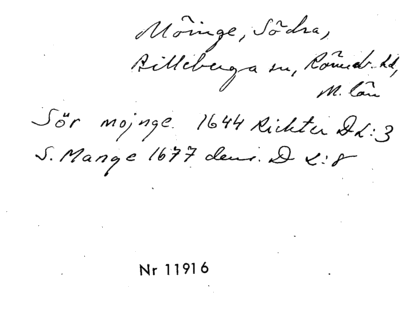 Möinge, Södra,
Billeberga sn, Rönneb. hd,
M. län
Sör mojnge. 1644 Richter D L: 3
S. Mange 1677 dens. D L: 8
Nr 11916